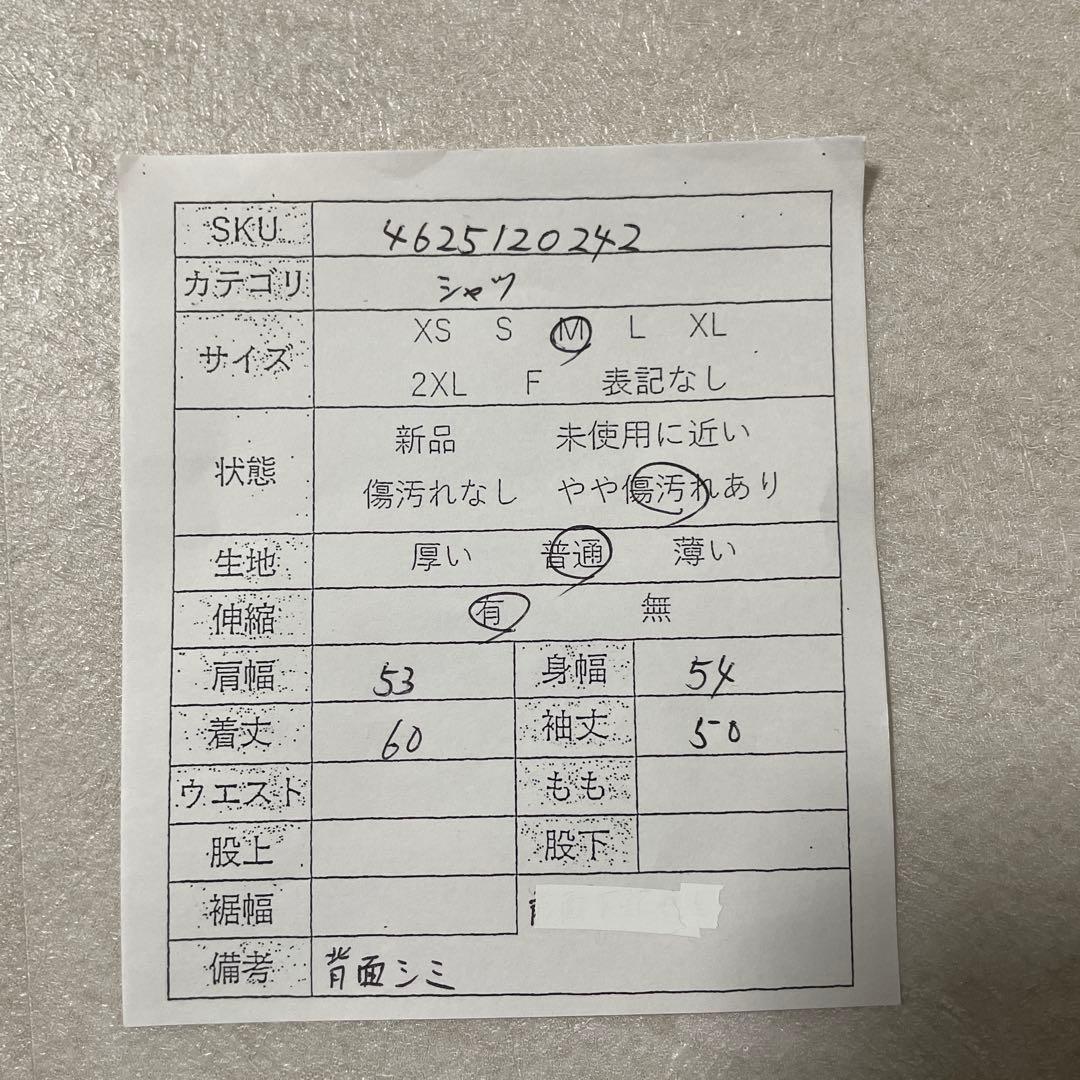 SKU 4625120242
カテゴリ シャツ
サイズ XS S M L XL
2XL F 表記なし
状態 新品 未使用に近い
傷汚れなし やや傷汚れあり
生地 厚い 普通 薄い
伸縮 有 無
肩幅 53 身幅 54
着丈 60 袖丈 50
ウエスト もも
股上 股下
裾幅
備考 背面シミ